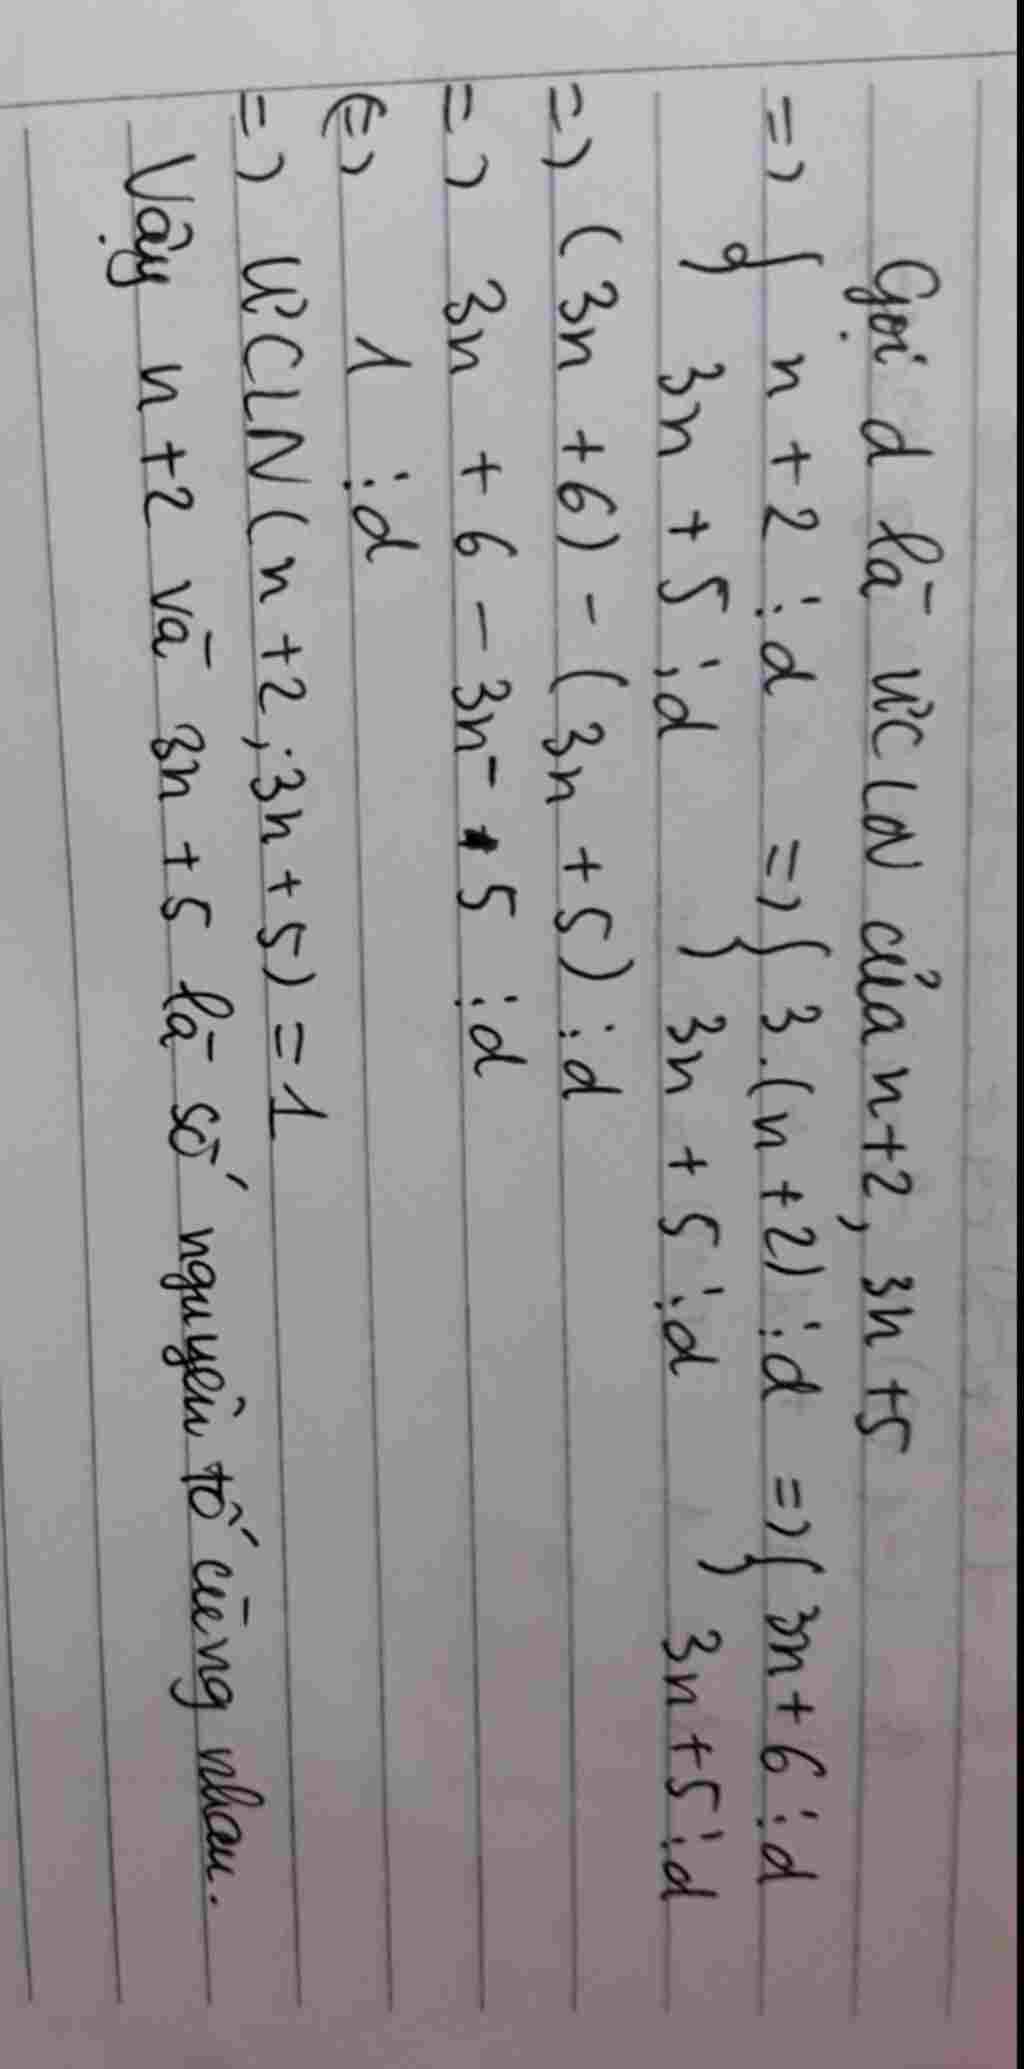 Gọi d là ƯCLN của n+2, 3n+5
=> { n + 2 ⋮ d => { 3.(n+2) ⋮ d => { 3n+6 ⋮ d
3n + 5 ⋮ d 3n + 5 ⋮ d 3n+5 ⋮ d
=> (3n +6) - (3n +5) ⋮ d
=> 3n + 6 - 3n - 5 ⋮ d
<=> 1 ⋮ d
=> ƯCLN (n +2; 3n +5) = 1
Vậy n +2 và 3n +5 là số nguyên tố cùng nhau.